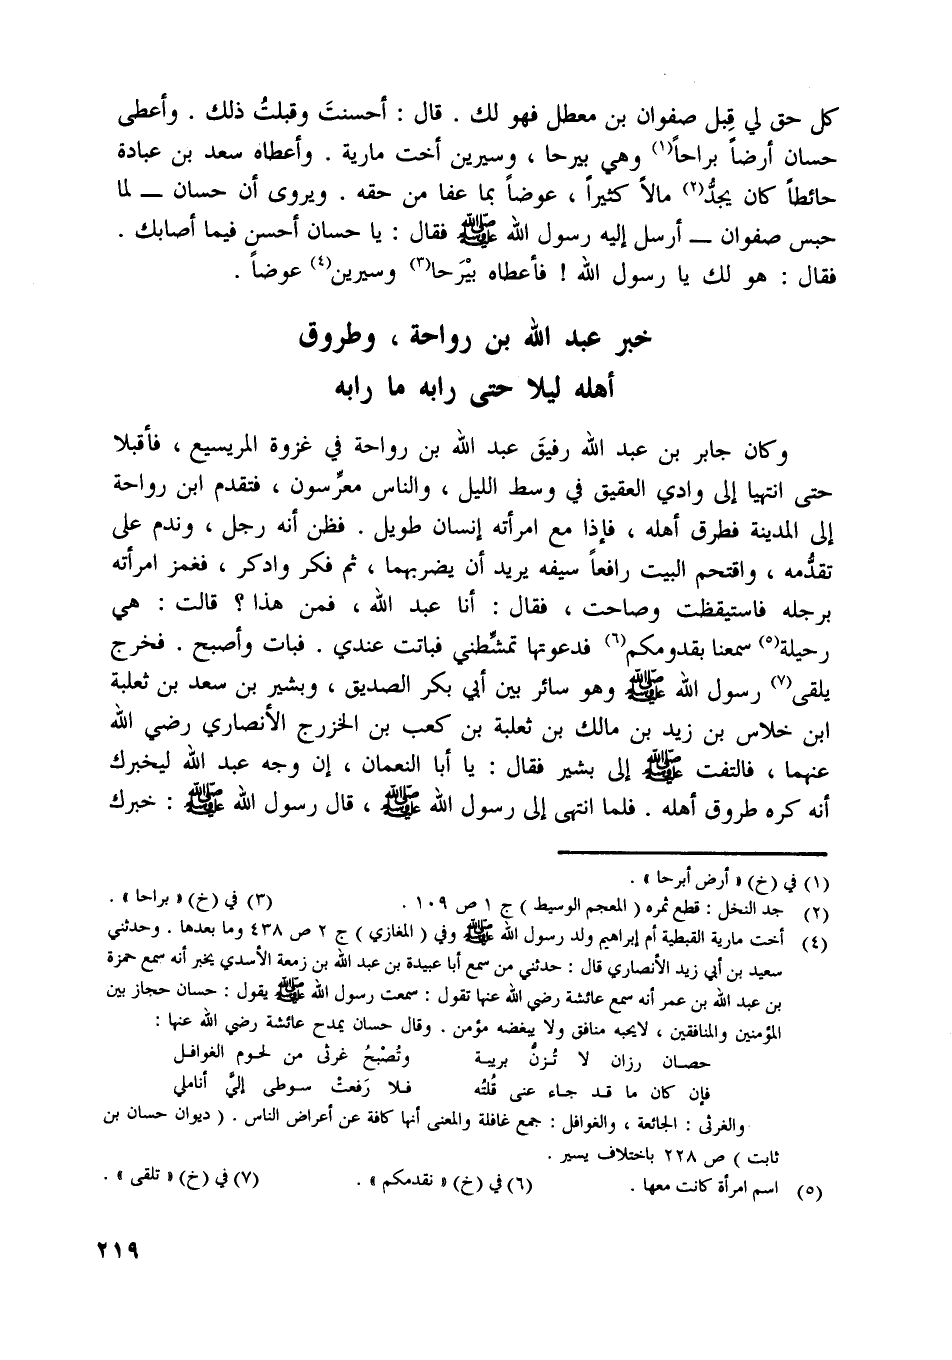 كل حق لي قِبل صفوان بن معطل فهو لك . قال : أحسنتَ وقبلتُ ذلك . وأعطى
حسان أرضاً براحاً(١) وهي بيرحا ، وسيرين أخت مارية . وأعطاه سعد بن عبادة
حائطاً كان يجدُّ(٢) مالاً كثيراً ، عوضاً بما عفا من حقه . ويروى أن حسان ــ لما
حبس صفوان ــ أرسل إليه رسول الله ﷺ فقال : يا حسان أحسن فيما أصابك .
فقال : هو لك يا رسول الله ! فأعطاه بيْرَحا(٣) وسيرين(٤) عوضاً .
خبر عبد الله بن رواحة ، وطروق
أهله ليلا حتى رابه ما رابه
وكان جابر بن عبد الله رفيقَ عبد الله بن رواحة في غزوة المريسيع ، فأقبلا
حتى انتهيا إلى وادي العقيق في وسط الليل ، والناس معرِّسون ، فتقدم ابن رواحة
إلى المدينة فطرق أهله ، فإذا مع امرأته إنسان طويل . فظن أنه رجل ، وندم على
تقدُّمه ، واقتحم البيت رافعاً سيفه يريد أن يضربهما ، ثم فكر وادكر ، فغمز امرأته
برجله فاستيقظت وصاحت ، فقال : أنا عبد الله ، فمن هذا ؟ قالت : هي
رحيلة(٥) سمعنا بقدومكم(٦) فدعوتها تمشِّطني فباتت عندي . فبات وأصبح . فخرج
يلقى(٧) رسول الله ﷺ وهو سائر بين أبي بكر الصديق ، وبشير بن سعد بن ثعلبة
ابن خلاس بن زيد بن مالك بن ثعلبة بن كعب بن الخزرج الأنصاري رضي الله
عنهما ، فالتفت ﷺ إلى بشير فقال : يا أبا النعمان ، إن وجه عبد الله ليخبرك
أنه كره طروق أهله . فلما انتهى إلى رسول الله ﷺ ، قال رسول الله ﷺ : خبرك
(١) في (خ) « أرض أبرحا » .
(٢) جد النخل : قطع ثمره ( المعجم الوسيط ) ج ١ ص ١٠٩ . (٣) في (خ) « براحا » .
(٤) أخت مارية القبطية أم إبراهيم ولد رسول الله ﷺ وفي ( المغازي ) ج ٢ ص ٤٣٨ وما بعدها . وحدثني
سعيد بن أبي زيد الأنصاري قال : حدثني من سمع أبا عبيدة بن عبد الله بن زمعة الأسدي يخبر أنه سمع حمزة
بن عبد الله بن عمر أنه سمع عائشة رضي الله عنها تقول : سمعت رسول الله ﷺ يقول : حسان حجاز بين
المؤمنين والمنافقين ، لايحبه منافق ولا يبغضه مؤمن . وقال حسان يمدح عائشة رضي الله عنها :
حصان رزان لا تُزنُّ بريبة وتُصْبحُ غرثى من لحوم الغوافل
فإن كان ما قد جاء عنى قُلتُه فلا رَفعتْ سوطى إليَّ أناملي
والغرثى : الجائعة ، والغوافل : جمع غافلة والمعنى أنها كافة عن أعراض الناس . ( ديوان حسان بن
ثابت ) ص ٢٢٨ باختلاف يسير .
(٥) اسم امرأة كانت معها . (٦) في (خ) « نقدمكم » . (٧) في (خ) « تلقى » .
٢١٩